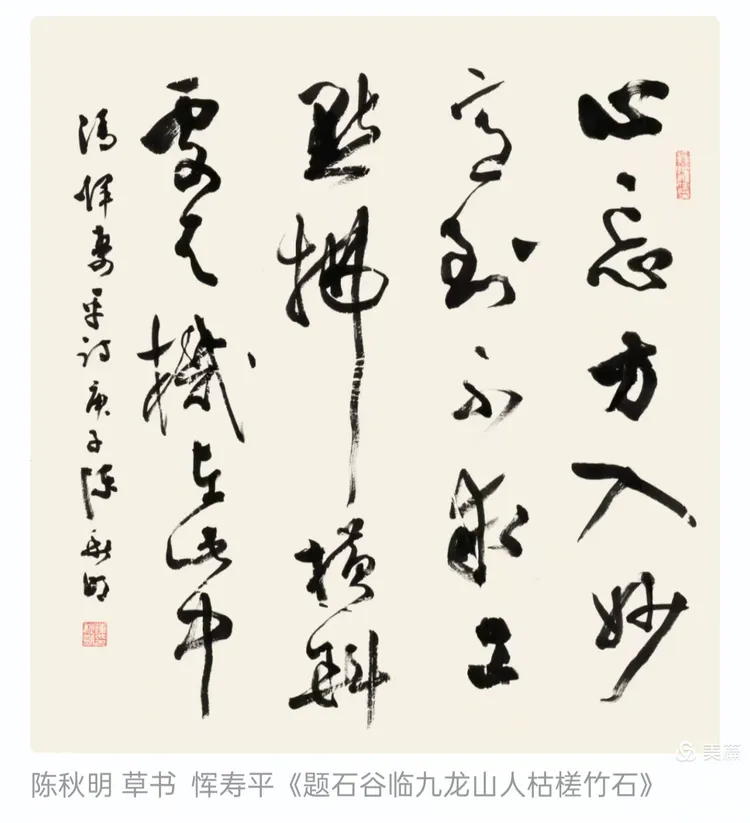 心忘方入妙
意到不求工
點拂橫斜
處天機在此中
清惲壽平詩庚子陳秋明
美篇
陈秋明 草书 恽寿平《题石谷临九龙山人枯槎竹石》